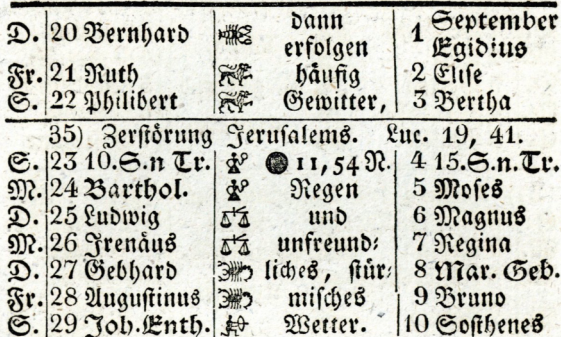 D. 20 Bernhard dann erfolgen 1 September Egidius
Fr. 21 Ruth häufig 2 Elise
S. 22 Philibert Gewitter, 3 Bertha
35) Zerstörung Jerusalems. Luc. 19, 41.
S. 23 10. S. n Tr. 11, 54 N. 4 15. S. n. Tr.
M. 24 Barthol. Regen 5 Moses
D. 25 Ludwig und 6 Magnus
M. 26 Irenäus unfreund⸗ 7 Regina
D. 27 Gebhard liches, stür⸗ 8 Mar. Geb.
Fr. 28 Augustinus misches 9 Bruno
S. 29 Joh. Enth. Wetter. 10 Sosthenes